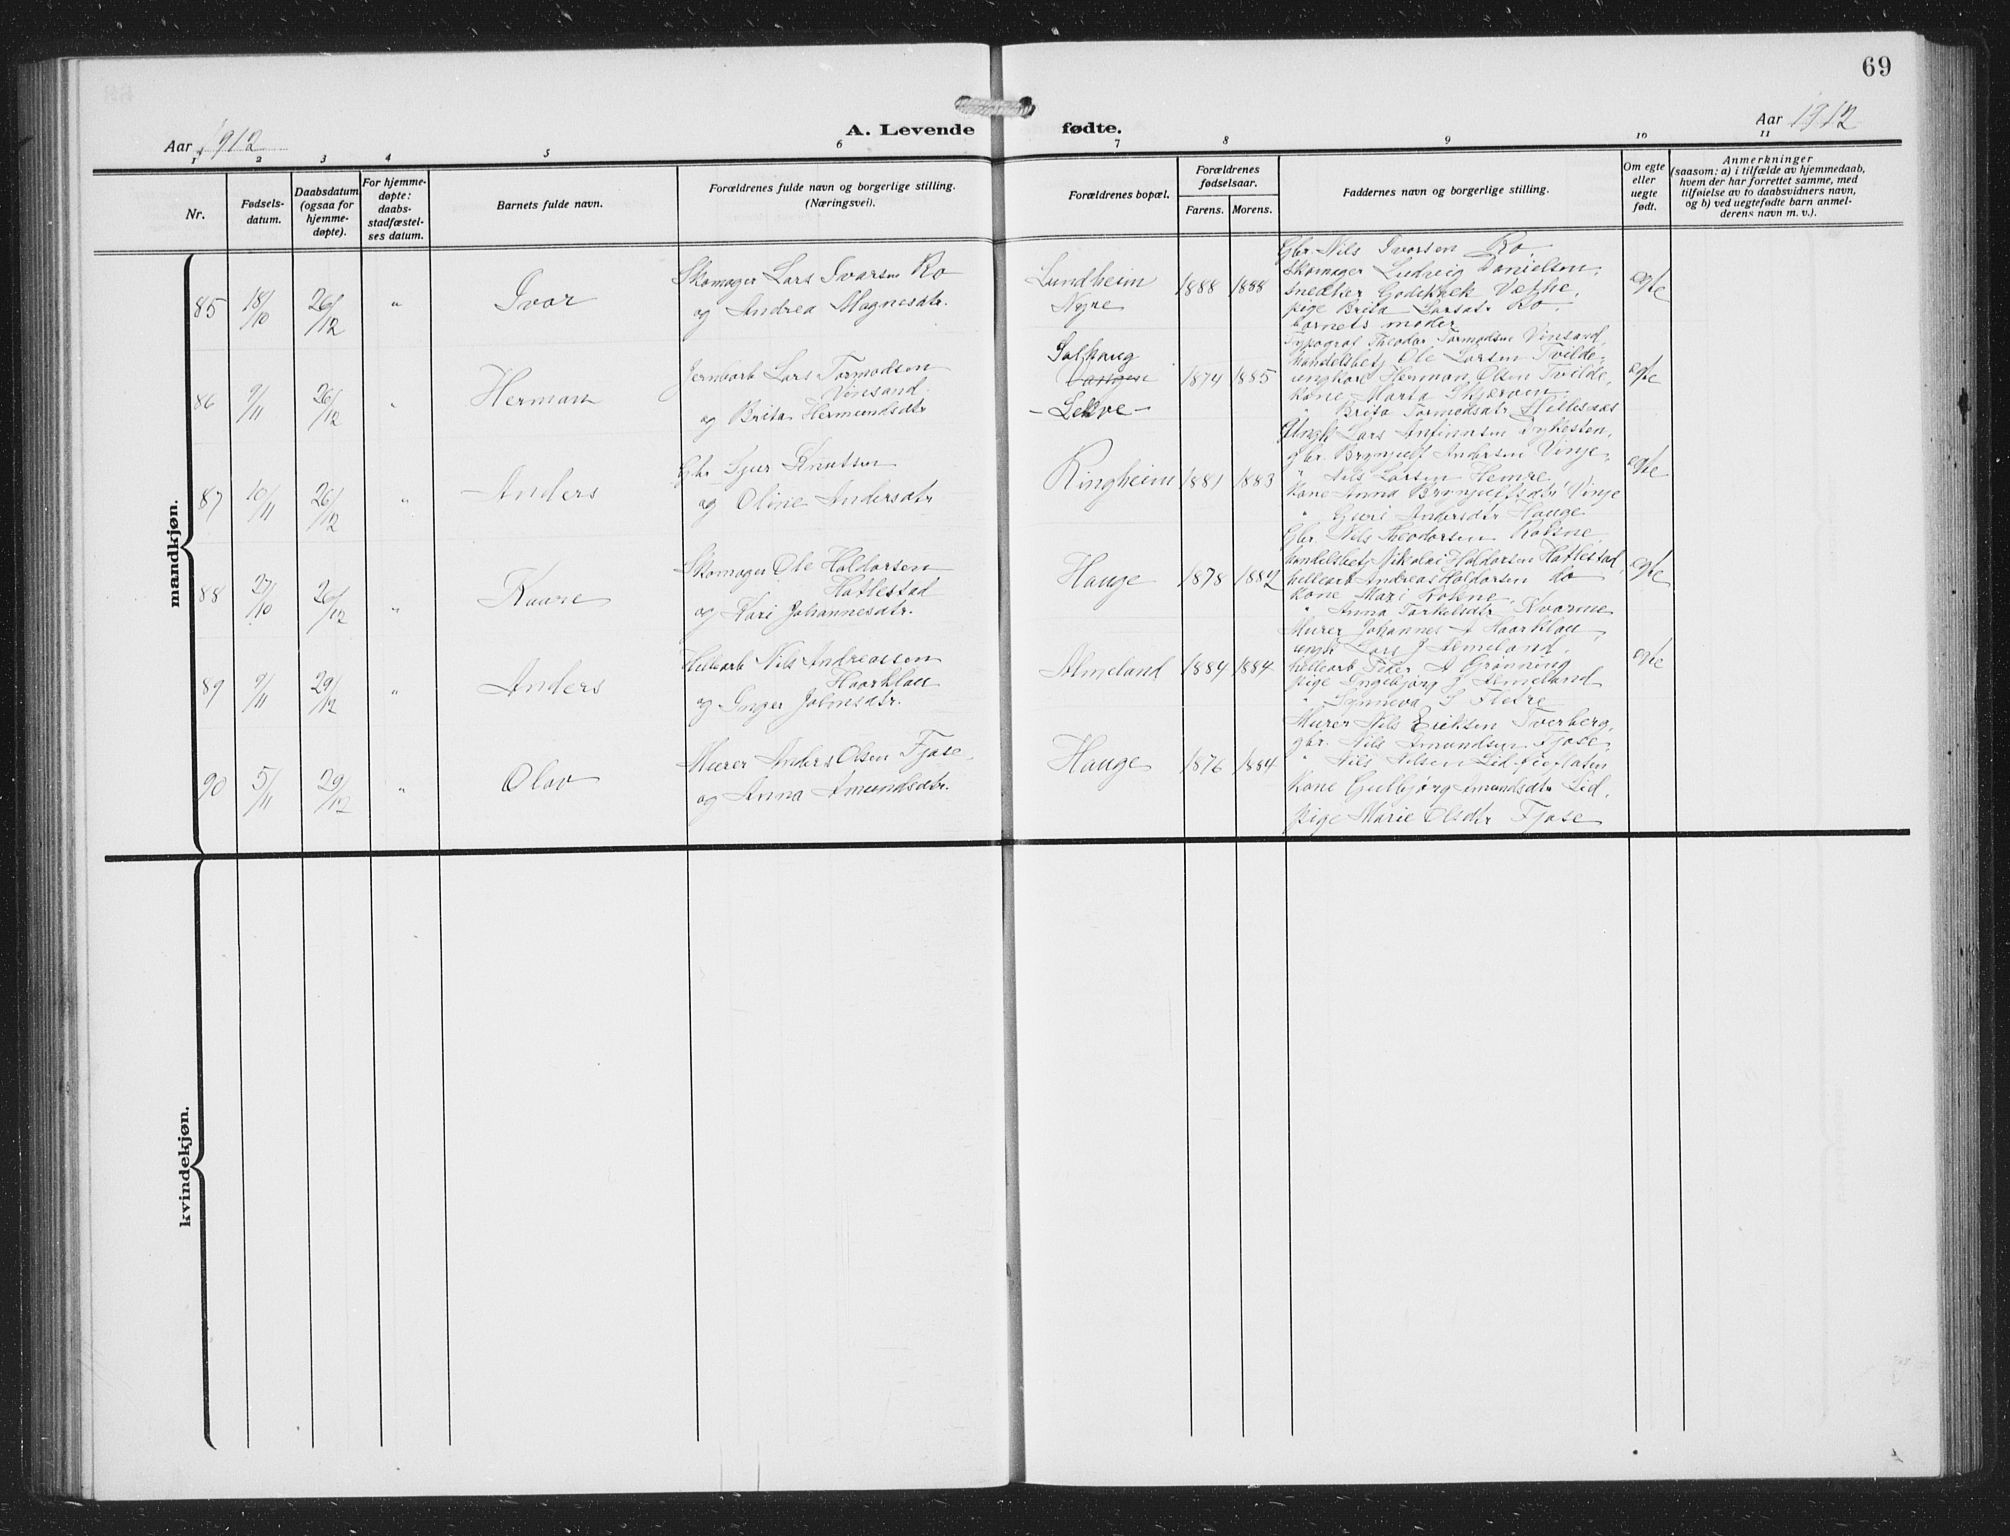 69
Aar 1912
A. Levende fødte.
Aar 1912
1 2 3 4 5 6 7 8 9 10 11
Nr.
Fødsels-
datum.
Daabsdatum
(ogsaa for
hjemme-
døpte).
For hjemme-
døpte:
daabs-
stadfæstel-
ses datum.
Barnets fulde navn.
Forældrenes fulde navn og borgerlige stilling.
(Næringsvei).
Forældrenes bopæl.
Forældrenes
fødselsaar.
Farens. Morens.
Faddernes navn og borgerlige stilling.
Om egte
eller
uegte
født.
Anmerkninger
(saasom: a) i tilfælde av hjemmedaab,
hvem der har forrettet samme, med
tilføielse av to daabsvidners navn,
og b) ved uegtefødte barn anmel-
derens navn m. v.).
mandkjøn.
85 18/10 26/12 " Ivar
Skomager Lars Ivarsen Ro
og Andrea Magnesdtr.
Lundheim
Nyre
1888 1888
Gbr. Nils Ivarsen Ro,
Skomager Ludvig Danielsen,
snedker Godskalk Vethe,
pige Brita Larsdtr Ro,
barnets moder
egte
86 9/11 26/12 " Herman
Jernarb Lars Tormodsen
Vinsand
og Brita Hermundsdtr
Solhaug
Vangen
- Lekve -
1874 1885
Typograf Theodor Tormodsen Vinsand,
handelsbetj Ole Larsen Tvilde,
ungkarl Herman Olsen Tvilde,
kone Marta Skjerven,
" Brita Tormodsdtr Hellesnæs
egte
87 10/11 26/12 " Anders
Gbr Sjur Knutsen
og Oline Andersdtr
Ringheim
1881 1883
Ungk Lars Anfinnsen Dykesten,
gbr. Brynjulf Andersen Vinje,
" Nils Larsen Hemre,
kone Anna Brynjulfsdtr Vinje
" Guri Andersdtr Hauge
egte
88 27/10 26/12 " Kaare
Skomager Ole Haldorsen
Hatlestad
og Kari Johannesdtr.
Hauge
1878 1882
Gbr. Nils Theodorsen Rokne,
handelsbetj Nikolai Haldorsen Hatlestad,
hellearb Andreas Haldorsen do
kone Mari Rokne,
" Anna Torkelsdtr Kvarme
egte
89 9/11 29/12 " Anders
Hellearb Nils Andreassen
Haarklau
og Inger Johnsdtr.
Almeland
1884 1884
Murer Johannes A Haarklau,
ungk Lars J Lemeland,
hellearb Peder A Grønning
pige Ingebjørg J Lemeland
" Synneva S Fletre
egte
90 5/11 29/12 " Olav
Murer Anders Olsen Fjose,
og Anna Amundsdtr.
Hauge
1876 1884
Murer Nils Eriksen Tverberg,
gbr. Nils Amundsen Fjose,
" Nils Nilsen Lid
kone Gudbjørg Amundsdtr Lid,
pige Marie Olsdtr Fjose
kvindekjøn.